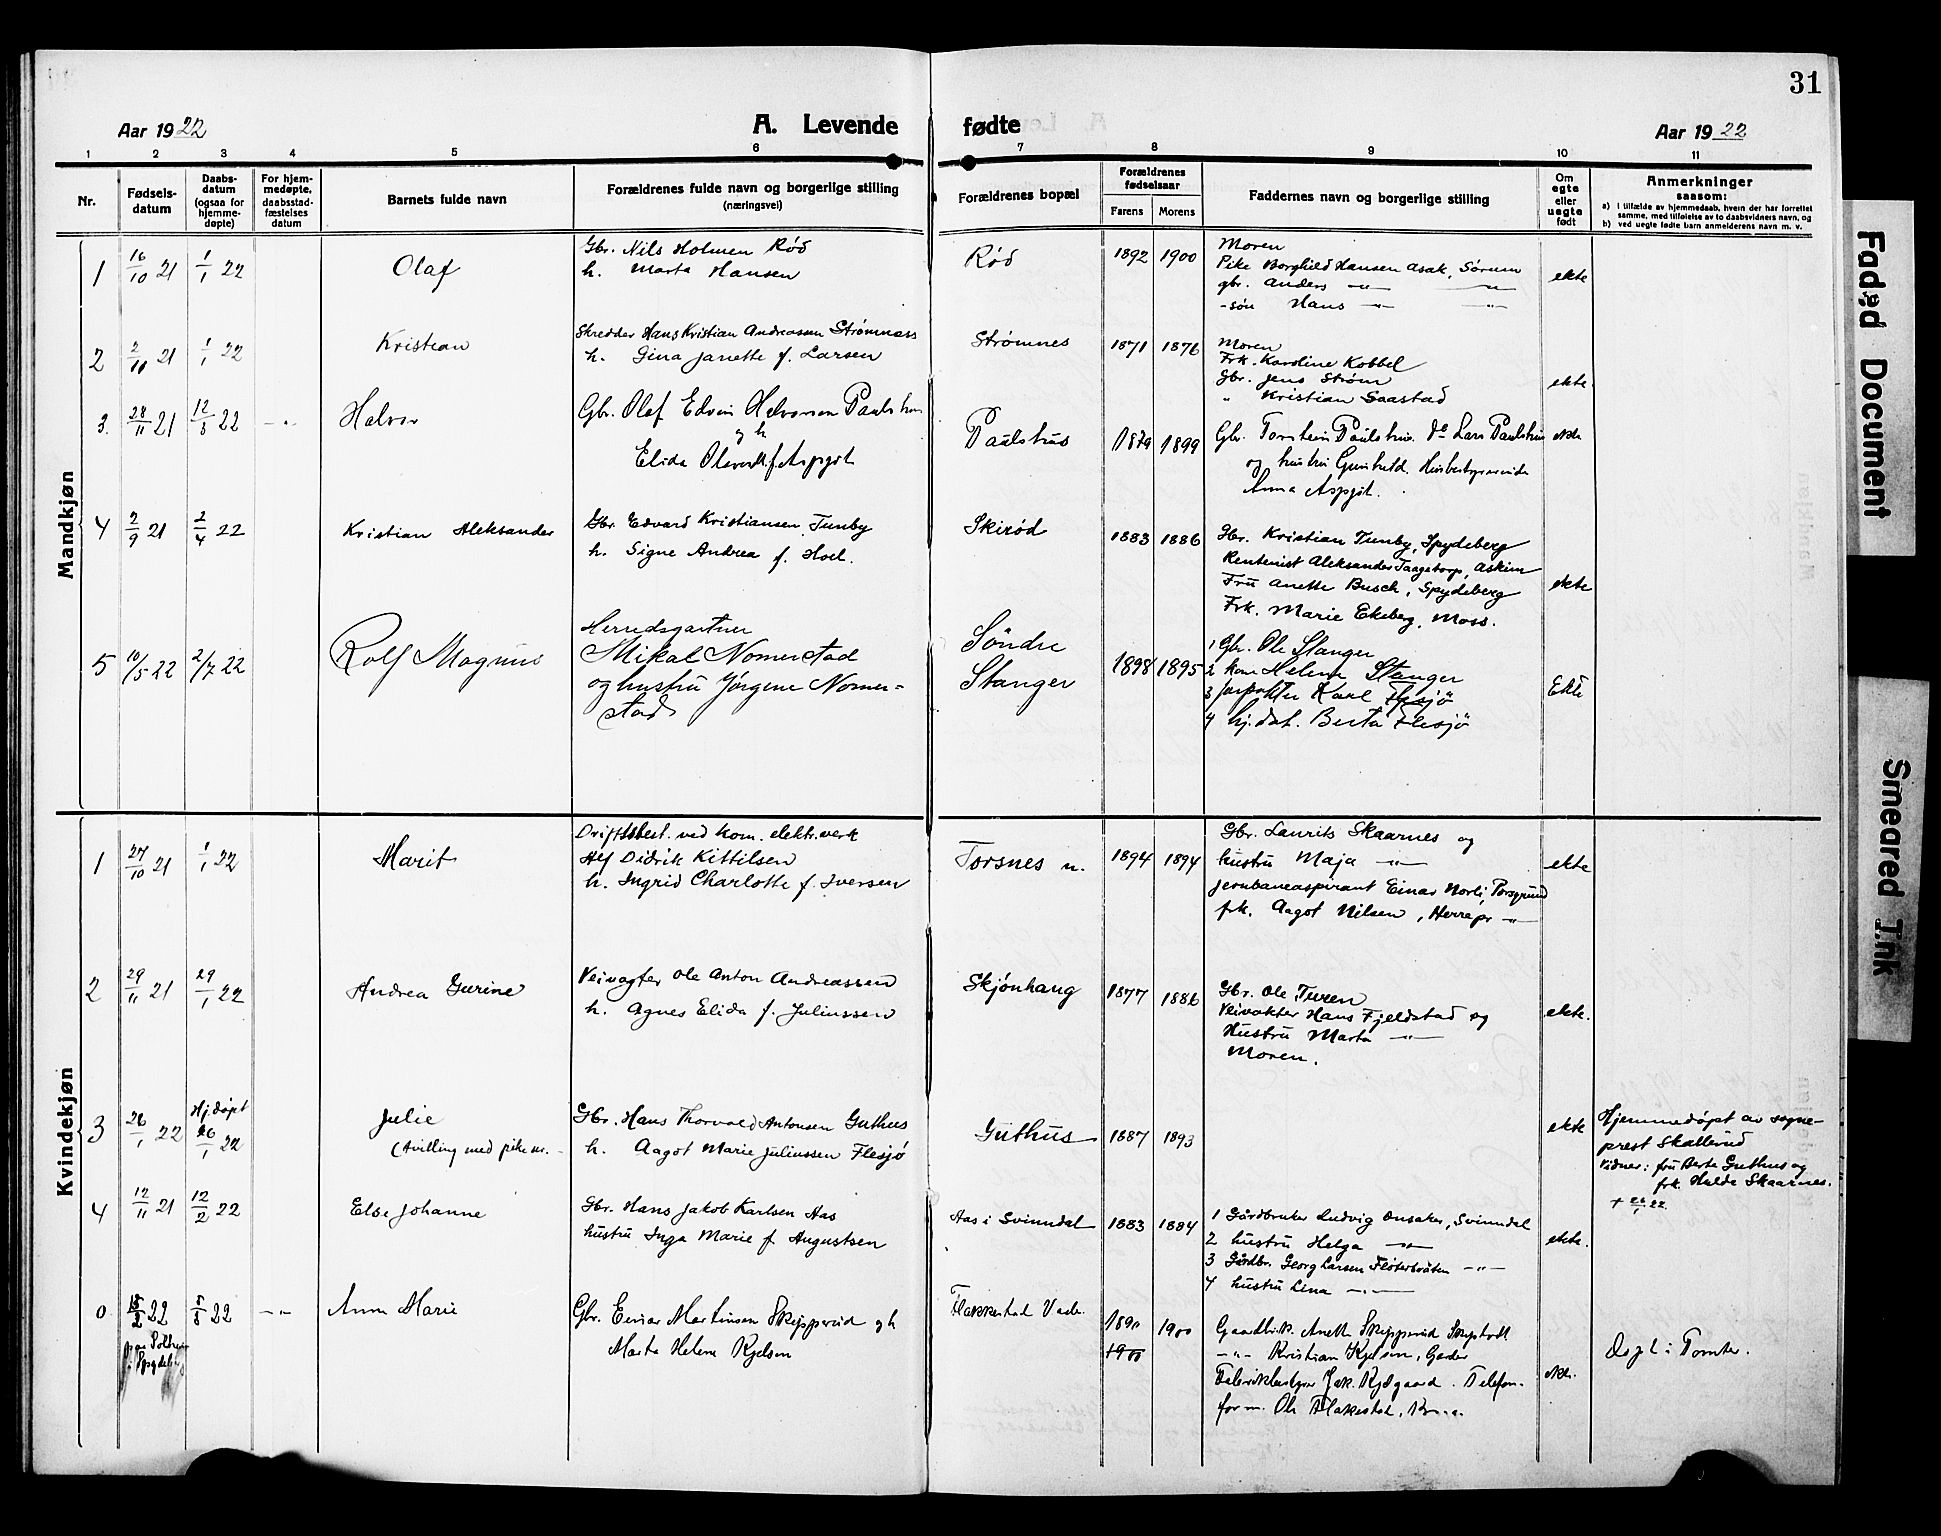 31
Aar 1922
A. Levende fødte
Aar 1922
1 2 3 4 5 6 7 8 9 10 11
Nr.
Fødsels-
datum
Daabs-
datum
(ogsaa for
hjemme-
døpte)
For hjem-
medøpte,
daabsstad-
fæstelses
datum
Barnets fulde navn
Forældrenes fulde navn og borgerlige stilling
(næringsvei)
Forældrenes bopæl
Forældrenes
fødselsaar
Farens Morens
Faddernes navn og borgerlige stilling
Om
egte
eller
uegte
født
Anmerkninger
saasom:
a) i tilfælde av hjemmedaab, hvem der har forrettet
samme, med tilføielse av to daabsvidners navn, og
b) ved uegte fødte barn anmelderens navn m. v.
Mandkjøn
1 16/10 21 1/1 22 Olaf
Gbr. Nils Holmen Rød
h. Marta Hansen
Rød 1892 1900
Moren
Pike Borghild Hansen Asak, Sørum
gbr. Anders -"- -"-
-søn Hans -"- -"-
ekte
2 2/10 21 1/1 22 Kristian
Skredder Hans Kristian Andreassen Strømnæss
h. Gina Janette f. Larsen
Strømnes 1871 1876
Moren
Frk. Karoline Kobbel
Gbr. Jens Strøm
" Kristian Saastad
ekte.
3. 28/11 21 12/3 22 -"- Halvor
Gbr. Olaf Edvin Halvorsen Paulshus
og h
Elida Olava f. Aspgot
Paulshus 1879 1899
Gbr. Torstein Paulshus. do Lars Paulshus
og hustru Gunhild. Husbestyrerinde
Anna Aspgot.
ekte
4 2/9 21 2/4 22 Kristian Aleksander
Gbr. Edvard Kristiansen Tunby
h. Signe Andrea f. Hoel.
Skirød 1883 1886
Gbr. Kristian Tunby, Spydeberg
Rentenist Aleksander Taagetorp, Askim
Fru Anette Busch, Spydeberg
Frk. Marie Ekeberg, Moss.
ekte
5 10/5 22 2/7 22 Rolf Magnus
Herredsgartner
Mikal Nomerstad
og hustru Jørgene Nomer=
stad
Söndre
Stanger
1898 1895
1 Gbr. Ole Stanger
2 kone Helene Stanger
3 forpakter Karl Flesjö
4 hj.dat. Berta Flesjö
Ekte
Kvindekjøn
1 27/10 21 1/1 22 Marit
Driftsbest. ved kom. elektr.verk
Alf Didrik Kittilsen
h. Ingrid Charlotte f. Iversen
Torsnes n. 1894 1894
Gbr. Laurits Skaarnes og
hustru Maja -"-
Jernbaneaspirant Einar Norli, Porsgrund
frk. Aagot Nilsen, Herrepr -"-
ekte
2 29/11 21 29/1 22 Andrea Gurine
Veivogter Ole Anton Andreassen
h. Agnes Elida f. Juliussen
Skjønhaug 1877 1886
Gbr. Ole Turen
Veivokter Hans Fjeldstad og
Hustru Marta -"-
Moren.
ekte.
3 26/1 22 Hj.døpt
26/1 22
Julie
(tvilling med pike nr. -
Gbr. Hans Thorvald Antonsen Guthus
h. Aagot Marie Juliussen Flesjø
Guthus 1887 1893
ekte
Hjemmedøpt av sogne-
prest Skallerud
Vidner: fru Berte Guthus og
frk. Hulda Skaarnes.
+ 26/1 22.
4 12/11 21 12/2 22 Else Johanne
Gbr. Hans Jakob Karlsen Aas
hustru Inga Marie f. Augustsen
Aas i Svinndal 1883 1884
1 Gårdbruker Ludvig Onsaker, Svinndal
2 hustru Helga -"-
3 Gårdbr. Georg Larsen Fløterbråten -"-
4 hustru Lina -"-
ekte.
0 15/2 22 5/8 22 -"- Anna Marie
Gbr. Einar Martinsen Skipperud og h
Marta Helene Kjelsen
Flakkestad Vaaler.
1890 1900
1900
Gaardbrk. Anett Skipperud Skiptvedt
-"- Kristian Kjelsen, Garder
Fabrikbestyrer Jak. Kjølgaard. Telefon-
form. Ole Flakestad,
ekte.
Døpt i Tomter.
Faded Document
Smeared Ink